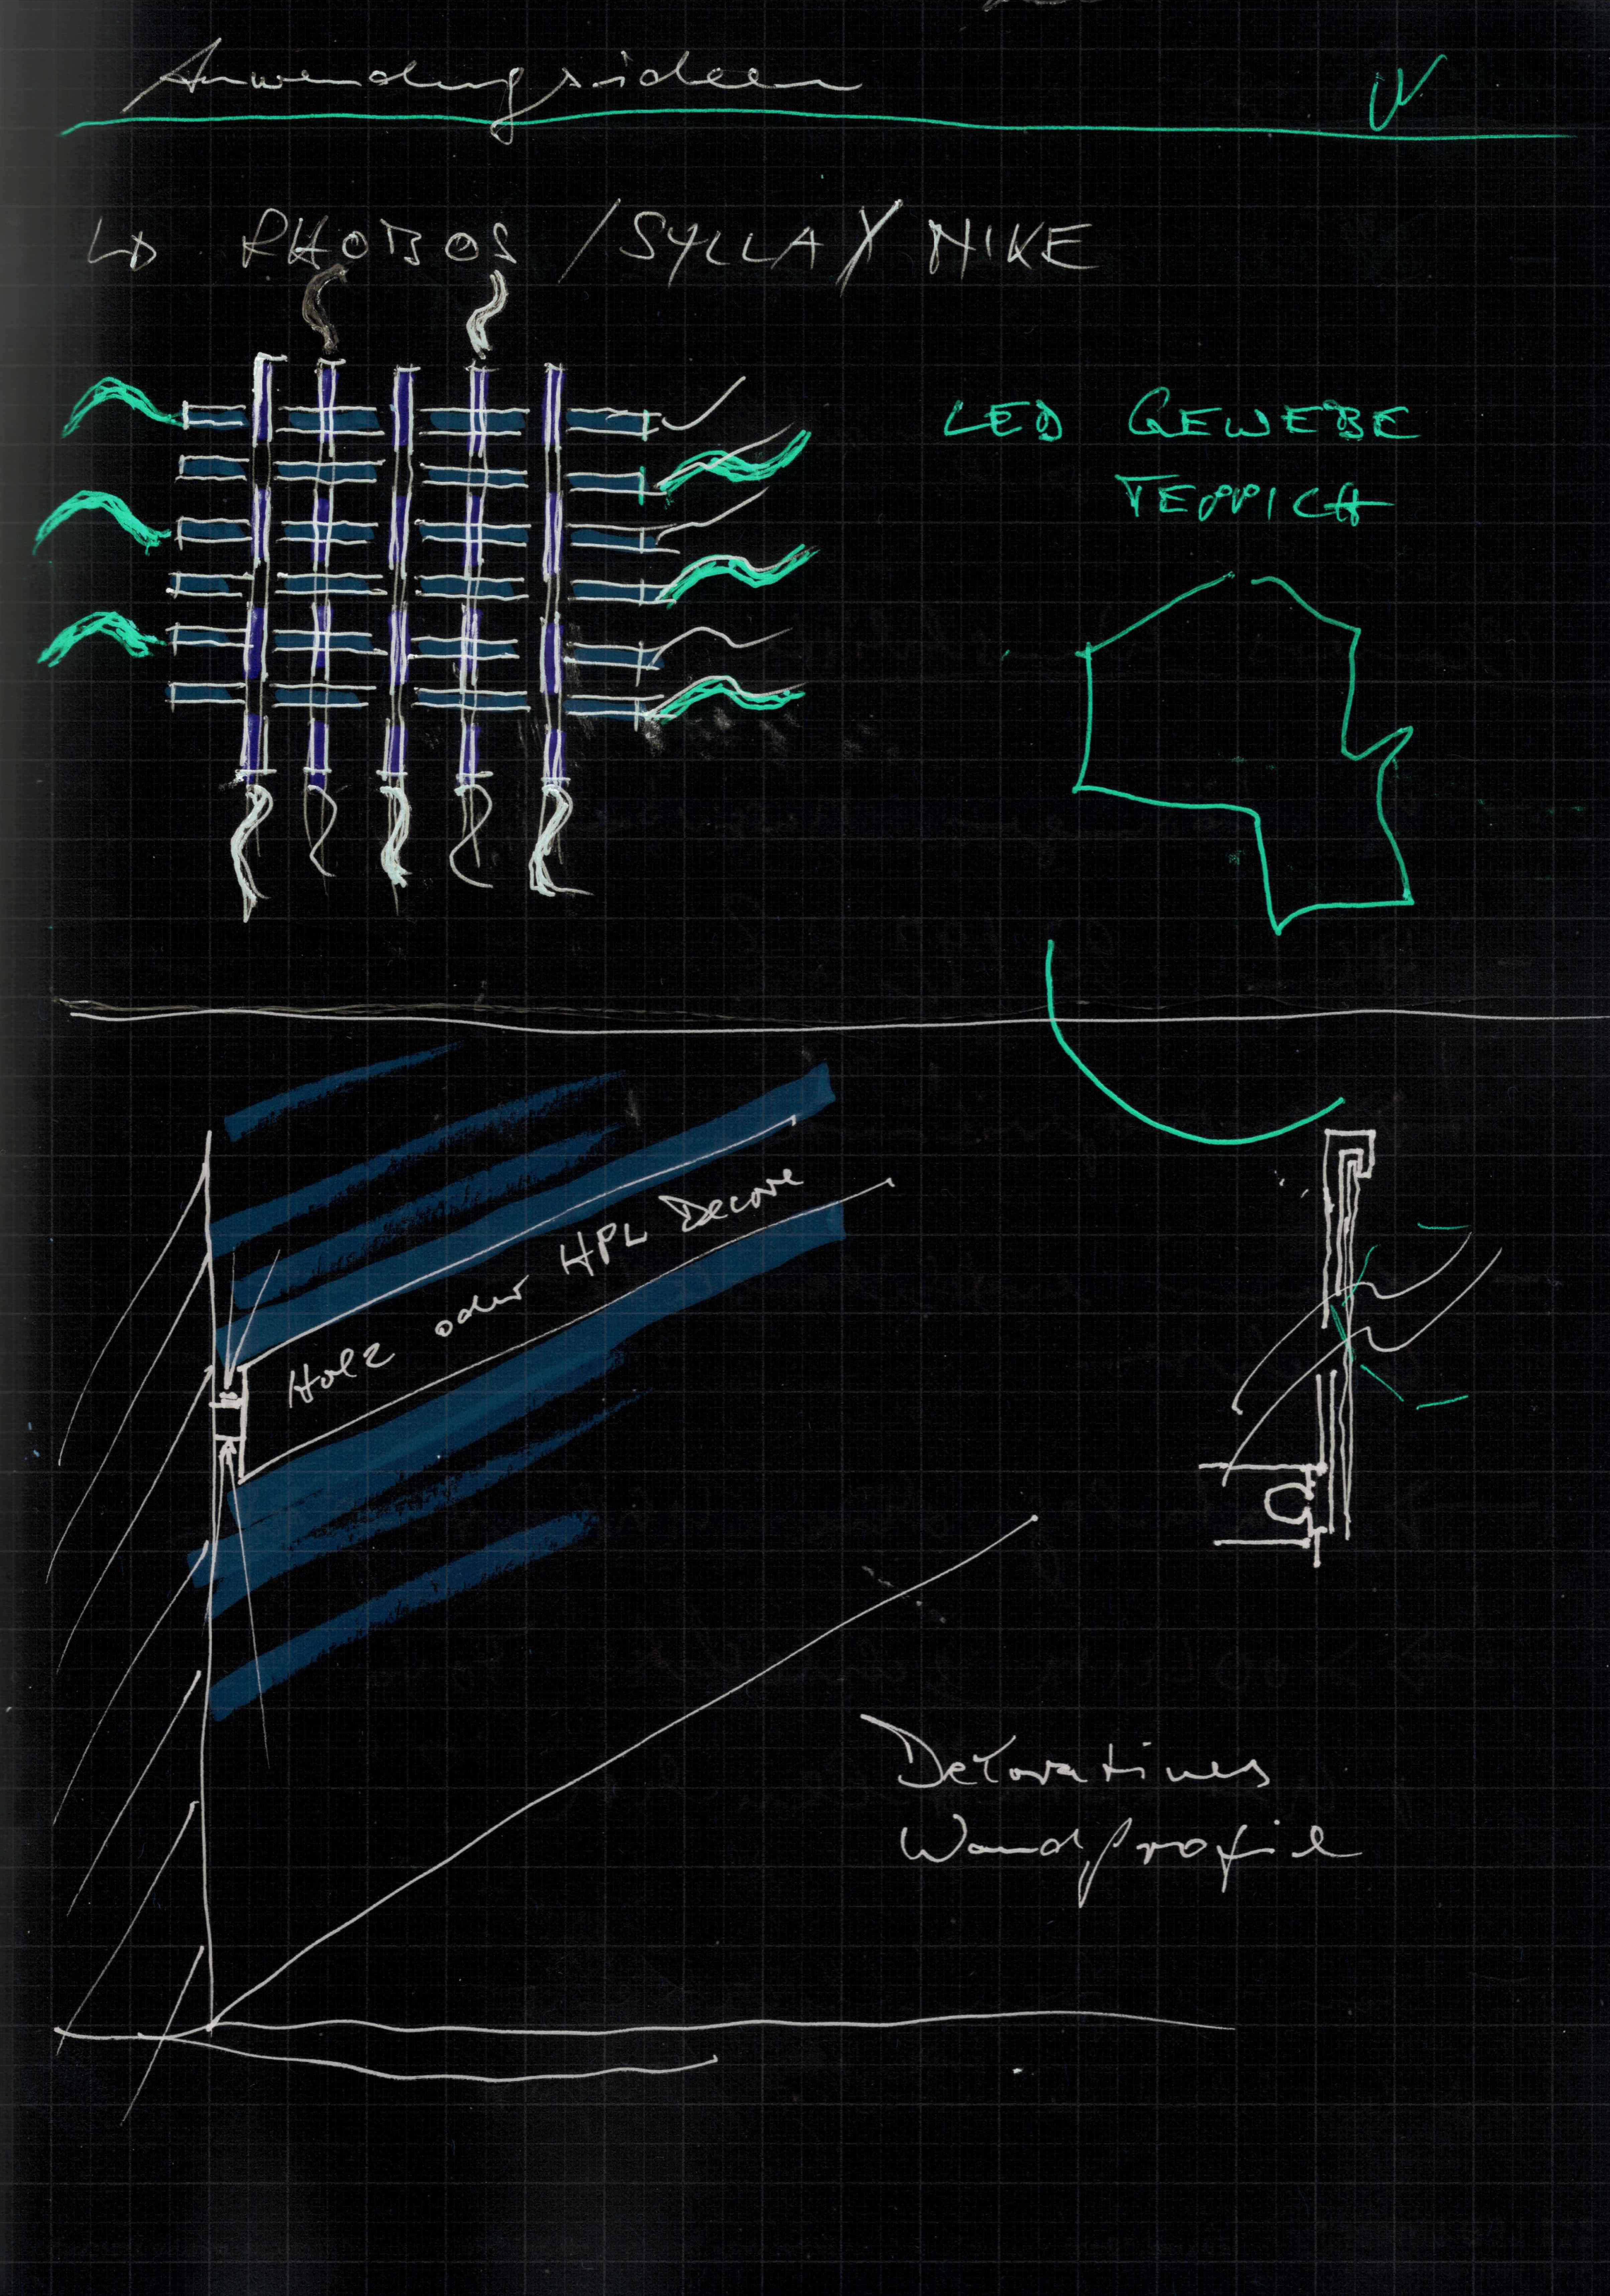 Anwendungsideen
LD PHOBOS / SYLLA / NIKE
LED GEWEBE
TEPPICH
Holz oder HPL Decore
Dekoratives
Wandprofil